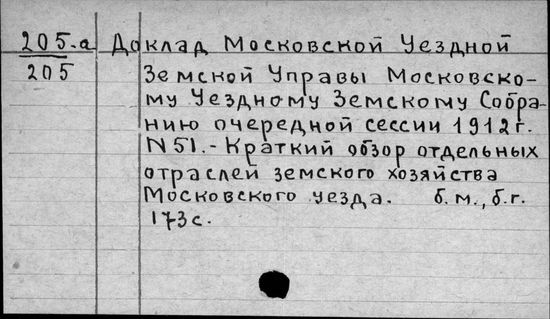 205-а Доклад Московской Уездной
205 Земской Управы Московско-
му Уездному Земскому Собра-
нию очередной сессии 1912 г.
N 51.- Краткий обзор отдельных
отраслей земского хозяйства
Московского уезда. б.м., б.г.
173 с.